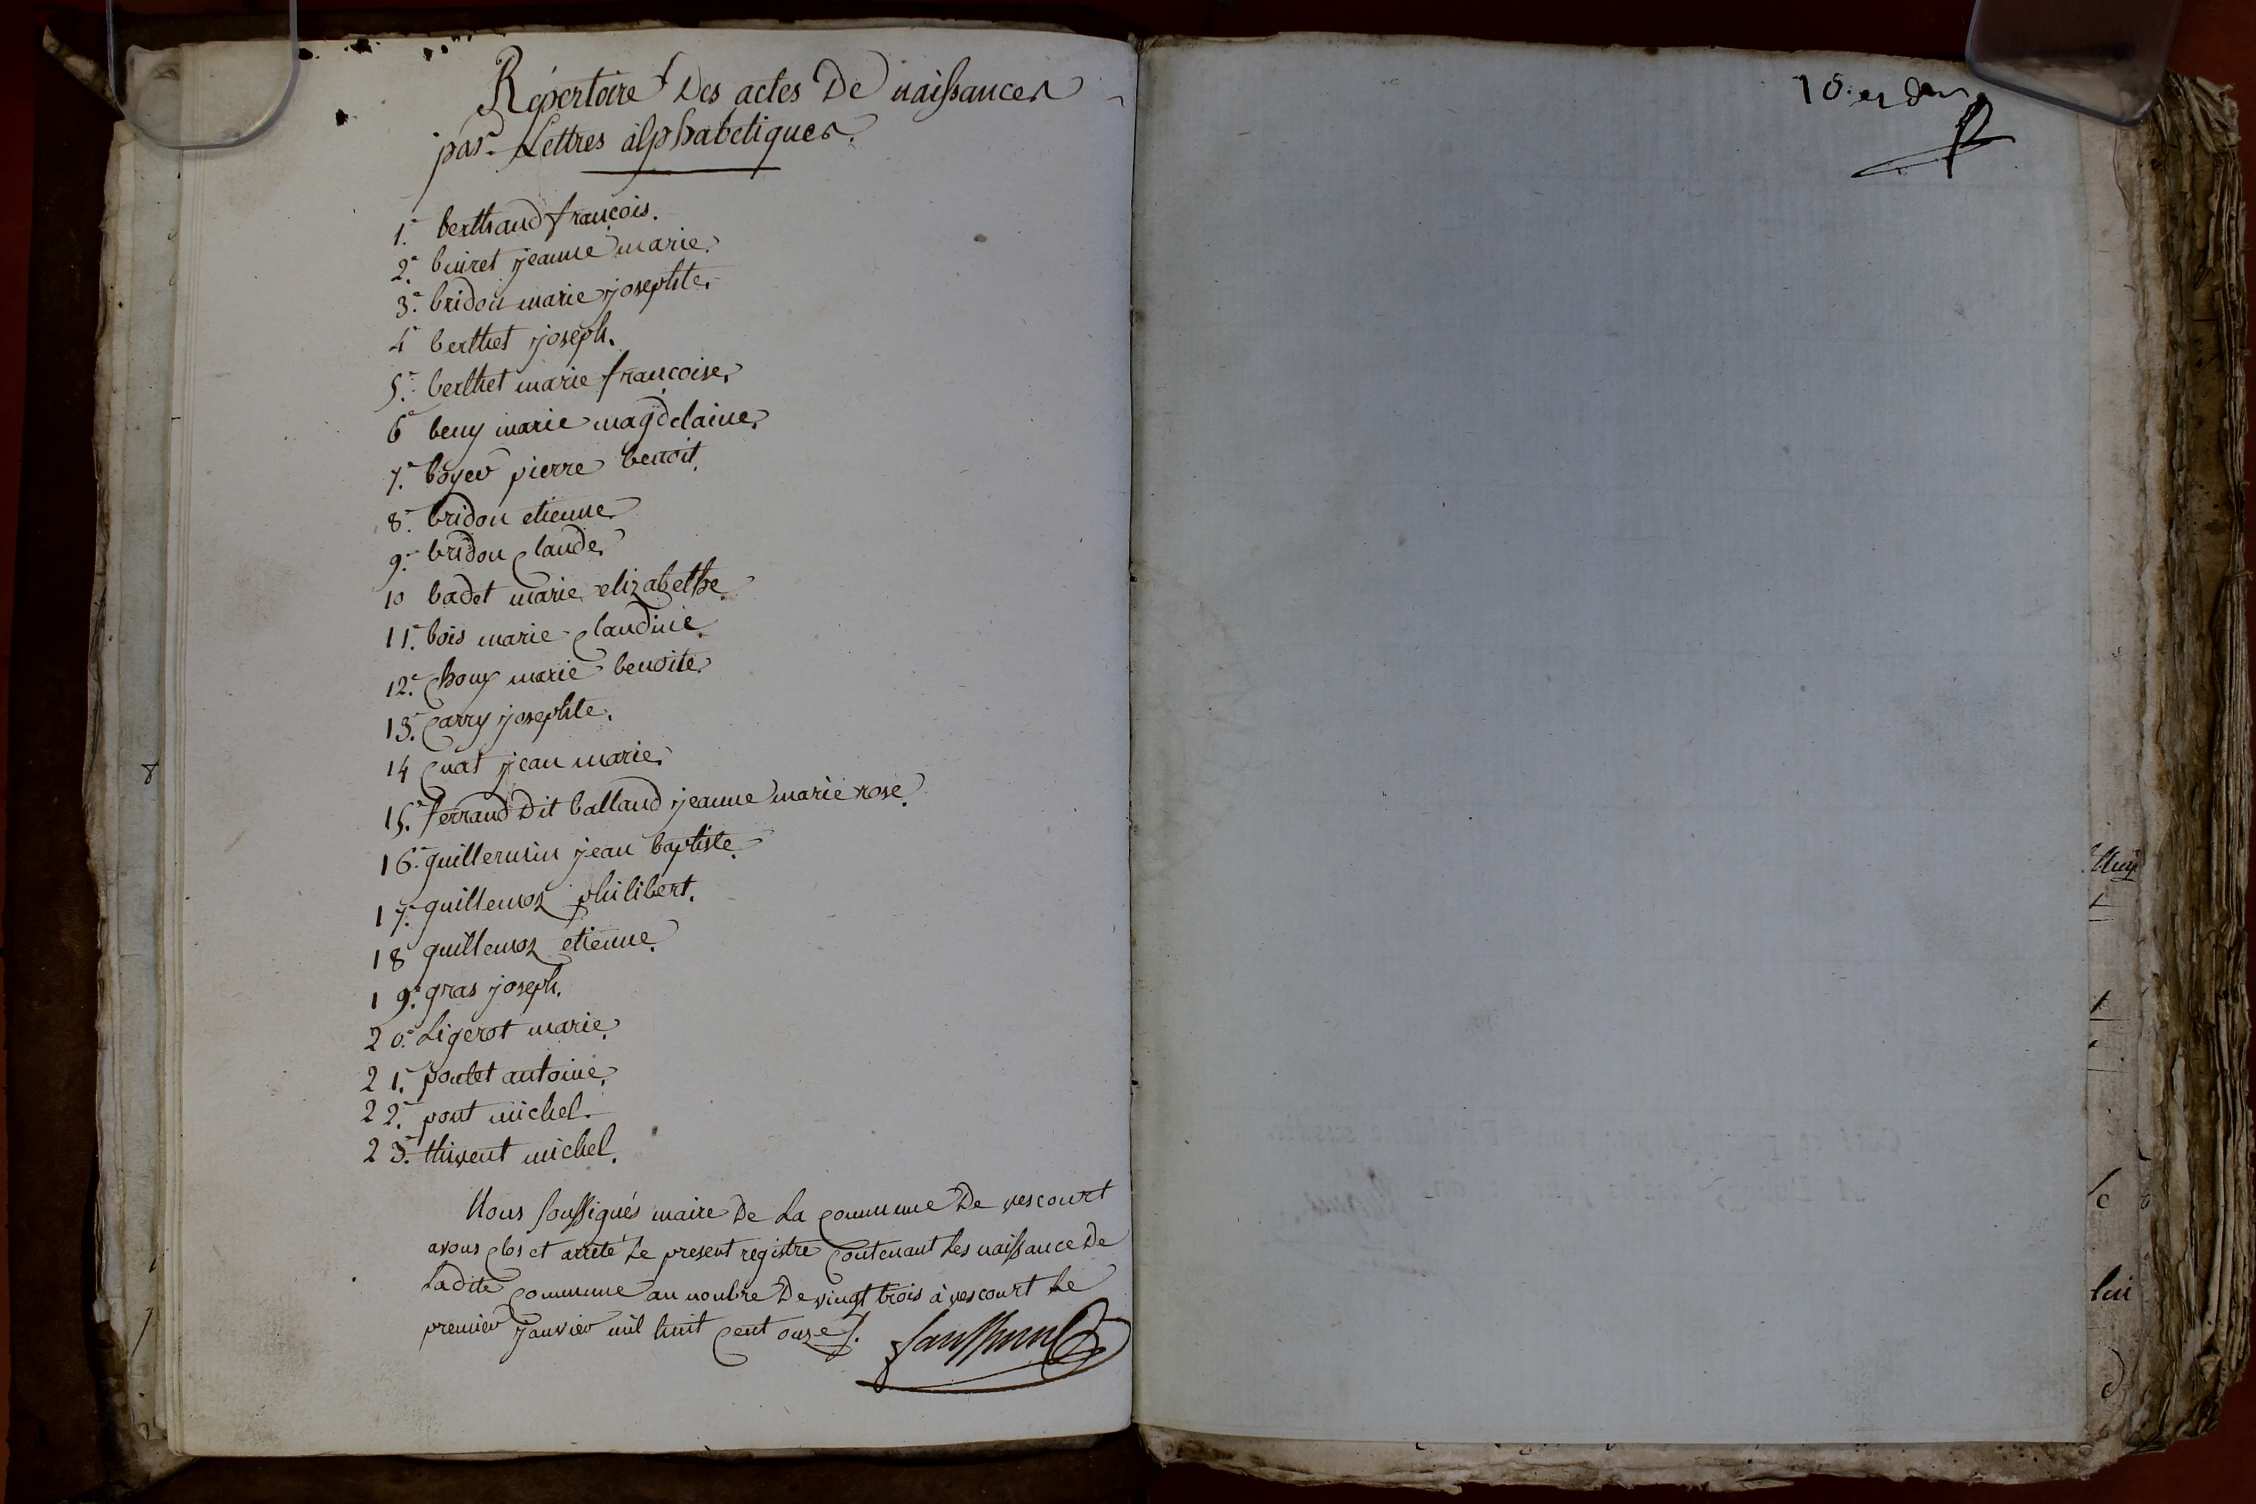 Répertoire Des actes De naissances
par Lettres alphabetiques.
1.e berthaud françois.
2.e buiret jeanne marie.
3.e bridon marie josephte.
4e berthet joseph.
5.e berthet marie françoise.
6e beny marie magdelaine.
7.e boyer pierre benoit.
8.e bridon etienne.
9.e bridon Claude.
10 badet marie elizabethe.
11.e bois marie Claudine.
12.e Chouy marie benoite.
13.e Carry josephte.
14 Cuat jean marie.
15.e ferraud Dit balland jeanne marie rose.
16.e guillermin jean baptiste.
17.e guillemoz philibert.
18e guillemoz etienne.
19.e gras joseph.
20.e Ligerot marie.
21.e poulet antoine.
22.e pont michel.
23.e thivent michel.
Nous soussignés maire De La Commune De vescourt
avons clos et arreté Le present registre Contenant Les naissance De
Ladite Commune au nonbre De vingt trois à vescourt Le
premier janvier mil huit Cent onze ./.
10.e et